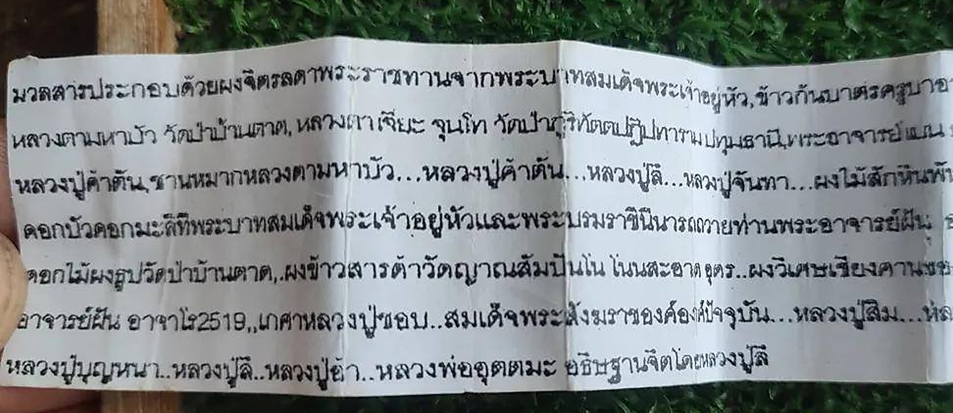 มวลสารประกอบด้วยผงจิตรลดาพระราชทานจากพระบาทสมเด็จพระเจ้าอยู่หัว,ข้าวก้นบาตรครูบาอา
หลวงตามหาบัว วัดป่าบ้านตาด,หลวงตาเจี๊ยะ จุนโท วัดป่าภูริทัตตปฏิปทาราม ปทุมธานี,พระอาจารย์แบน
หลวงปู่คำตัน,ชานหมากหลวงตามหาบัว...หลวงปู่คำตัน...หลวงปู่ลี...หลวงปู่จันทา...ผงไม้สักหินพัน
ดอกบัวดอกมะลิที่พระบาทสมเด็จพระเจ้าอยู่หัวและพระบรมราชินีนารถถวายท่านพระอาจารย์ฝั้น
ดอกไม้ผงธูปวัดป่าบ้านตาด,.ผงข้าวสารดำวัดญาณสัมปันโน โนนสะอาด อุดร..ผงวิเศษเชียงคาน
อาจารย์ฝั้น อาจาโร2519,,เกศาหลวงปู่ชอบ..สมเด็จพระสังฆราชองค์องค์ปัจจุบัน...หลวงปู่สิม...หล
หลวงปู่บุญหนา..หลวงปู่ลี..หลวงปู่อ่ำ..หลวงพ่ออุตตมะ อธิษฐานจิตโดยหลวงปู่ลี